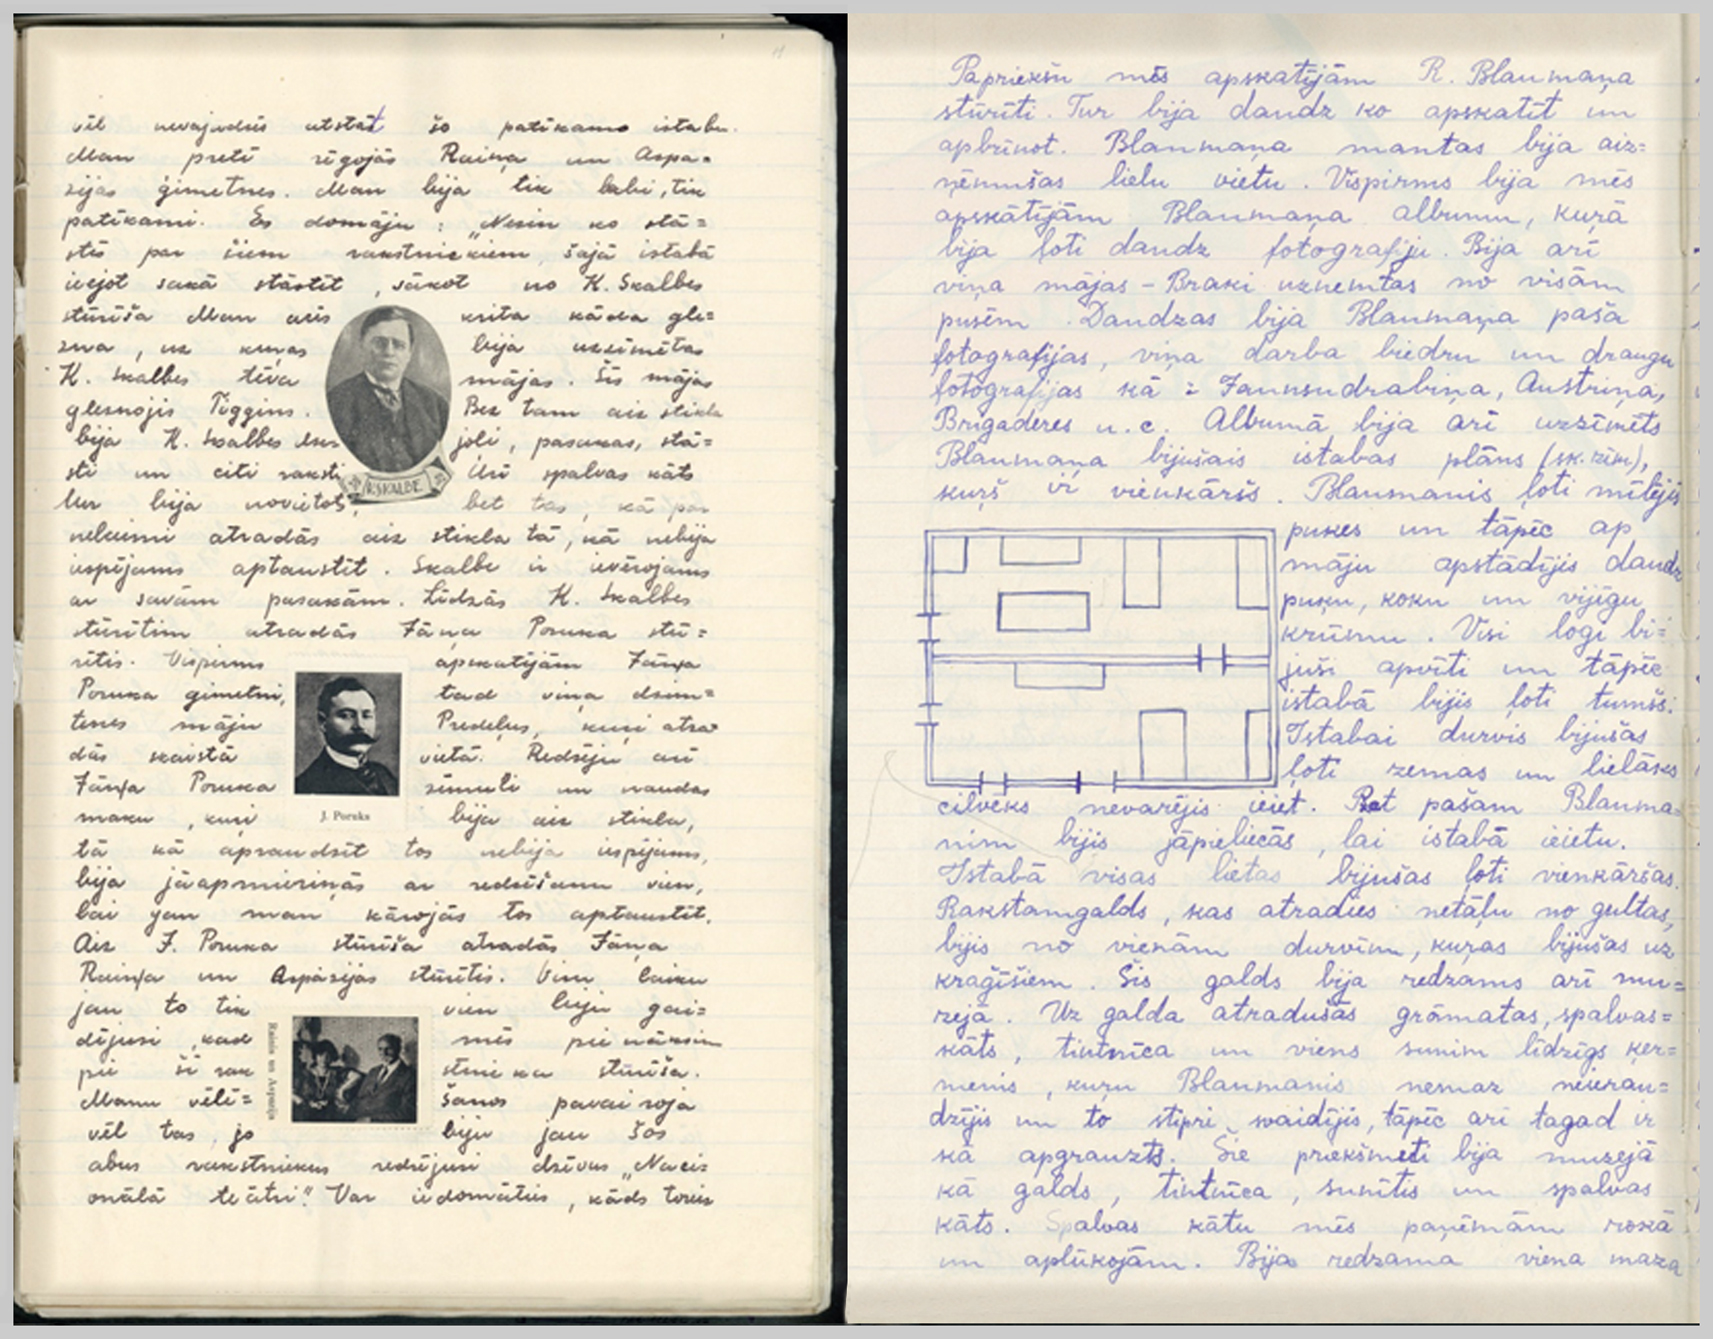 vēl nevajadzēs atstāt šo patīkamo istabu.
Man pretī rēgojās Raiņa un Aspa=
zijas ģimetnes. Man bija tik labi, tik
patīkami. Es domāju: „Nezin ko stā=
stīs par šiem rakstniekiem, šajā istabā
ieejot sākā stāstīt, sākot no K. Skalbes
stūrīša Man acīs krita kāda gle=
zna, uz kuŗas bija uzzīmētas
K. Skalbes tēva mājas. Šīs mājas
gleznojis Tiggins. Bez tam aiz stikla
bija K. Skalbes joli, pasakas, stā=
sti un citi raksti Arī spalvas kāts
tur bija novietots, bet tas, kā par
nelaimi atradās aiz stikla tā, kā nebija
iespējams aptaustīt. Skalbe ir ievērojams
ar savām pasakām. Līdzās K. Skalbes
stūrītim atradās Jāņa Poruka stū=
rītis. Vispirms apskatījām Jāņa
Poruka ģimetni, tad viņa dzim=
tenes māju Predeļus, kuŗi atra=
dās skaistā vietā. Redzēju arī
Jāņa Poruka zīmuli un naudas
maku, kuŗi bija aiz stikla,
J. Poruks
tā kā apraudzīt tos nebija iespējams,
bija jāapmierinās ar redzēšanu vien,
lai gan man kārojās tos aptaustīt.
Aiz J. Poruka stūrīša atradās Jāņa
Raiņa un Aspazijas stūrītis. Visu laiku
jau to tik vien biju gai=
dījusi, kad mēs pienāksim
pie šī rak stnieka stūrīša.
Manu vēlē= šanos pavairoja
vēl tas, jo biju jau šos
Rainis un Aspazija
abus rakstniekus redzējusi dzīvus „Naci=
onālā teātrī." Var iedomāties, kāds toreiz
K. SKALBE
Papriekšu mēs apskatījām R. Blaumaņa
stūrīti. Tur bija daudz ko apskatīt un
apbrīnot. Blaumaņa mantas bija aiz=
ņēmušas lielu vietu. Vispirms bija mēs
apskātījām Blaumaņa albumu, kuŗā
bija ļoti daudz fotografiju. Bija arī
viņa mājas – Braki uzņemtas no visām
pusēm. Daudzas bija Blaumaņa paša
fotografijas, viņa darba biedru un draugu
fotografijas kā: Jaunsudrabiņa, Austriņa,
Brigaderes u.c. Albumā bija arī uzzīmēts
Blaumaņa bijušais istabas plāns (sk. zīm),
kurš ir vienkāršs. Blaumanis ļoti mīlējis
puķes un tāpēc ap
māju apstādījis daudz
puķu, koku un vijīgu
krūmu. Visi logi bi=
juši apvīti un tāpēc
istabā bijis ļoti tumšs.
Istabai durvis bijušas
ļoti zemas un lielāks
cilvēks nevarējis ieiet. Pat pašam Blauma=
nim bijis jāpieliecās, lai istabā ieietu.
Istabā visas lietas bijušas ļoti vienkāršas.
Rakstamgalds, kas atradies netāļu no gultas,
bijis no vienām durvīm, kuŗas bijušas uz
kraģīšiem. Šis galds bija redzams arī mu=
zejā. Uz galda atradušās grāmatas, spalvas=
kāts, tintnīca un viens sunim līdzīgs ķer=
menis, kuŗu Blaumanis nemaz neierau=
dzījis un to stipri spaidījis, tāpēc arī tagad ir
kā apgrauzts. Šie priekšmeti bija muzejā
kā galds, tintnīca, sunītis un spalvas
kāts. Spalvas kātu mēs paņēmām rokā
un aplūkojām. Bija redzama viena maza